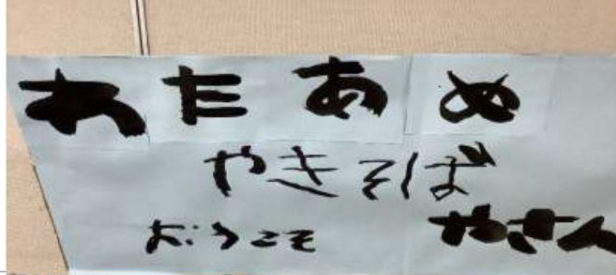 わたあめ
やきそば
おうこそ やさん